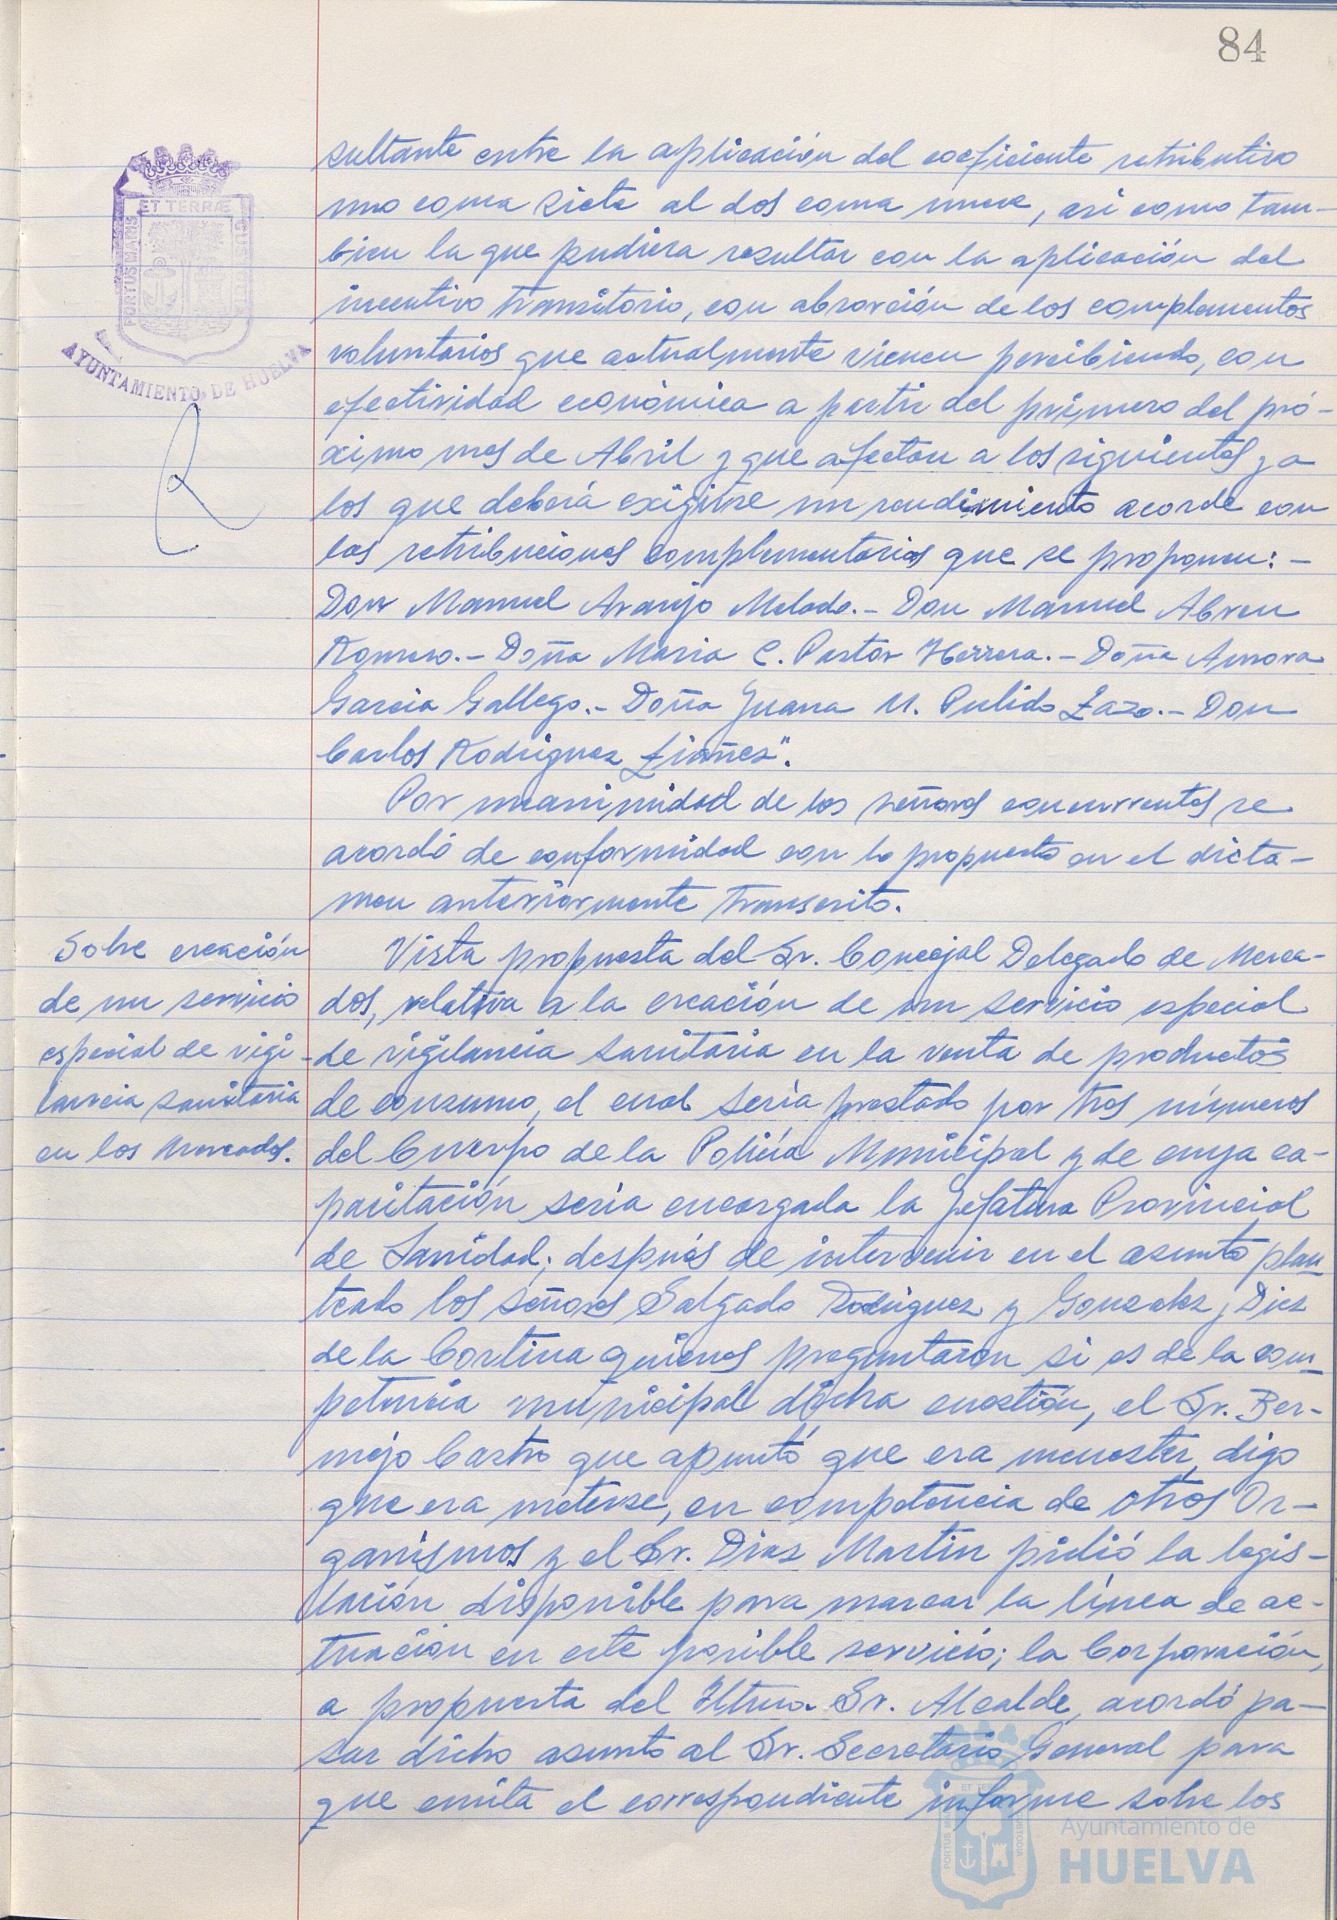 84
sultante entre la aplicación del coeficiente retributivo
uno coma siete al dos coma nueve, asi como tam-
bien la que pudiera resultar con la aplicación del
incentivo transitorio, con absorción de los complementos
voluntarios que actualmente vienen percibiendo, con
efectividad económica a partir del primero del pró-
ximo mes de Abril y que afectan a los siguientes y a
los que deberá exigirse un rendimiento acorde con
las retribuciones complementarias que se proponen: -
Don Manuel Araujo Melado.- Don Manuel Abreu
Romero.- Doña Maria C. Pastor Herrera.- Doña Aurora
Garcia Gallego.- Doña Juana M. Pulido Lazo.- Don
Carlos Rodriguez Liañez".
Por unanimidad de los señores concurrentes se
acordó de conformidad con lo propuesto en el dicta-
men anteriormente transcrito.
Sobre creación
de un servicio
especial de vigi-
lancia sanitaria
en los Mercados.
Vista propuesta del Sr. Concejal Delegado de Merca-
dos, relativa a la creación de un servicio especial
de vigilancia sanitaria en la venta de productos
de consumo, el cual sería prestado por tres números
del Cuerpo de la Policía Municipal y de cuya ca-
pacitación seria encargada la Jefatura Provincial
de Sanidad; después de intervenir en el asunto plan-
teado los señores Salgado Rodriguez y Gonzalez, Diez
de la Cortina quienes preguntaron si es de la com-
petencia municipal dicha cuestión, el Sr. Ber-
mejo Castro que apuntó que era menester, digo
que era meterse, en competencia de otros Or-
ganismos y el Sr. Diaz Martin pidió la legis-
lación disponible para marcar la línea de ac-
tuación en este posible servicio; la Corporación,
a propuesta del Iltmo. Sr. Alcalde, acordó pa-
sar dicho asunto al Sr. Secretario General para
que emita el correspondiente informe sobre los
ET TERRAE
PORTUS MARIS
CUSTODIA
AYUNTAMIENTO DE HUELVA
Ayuntamiento de
HUELVA